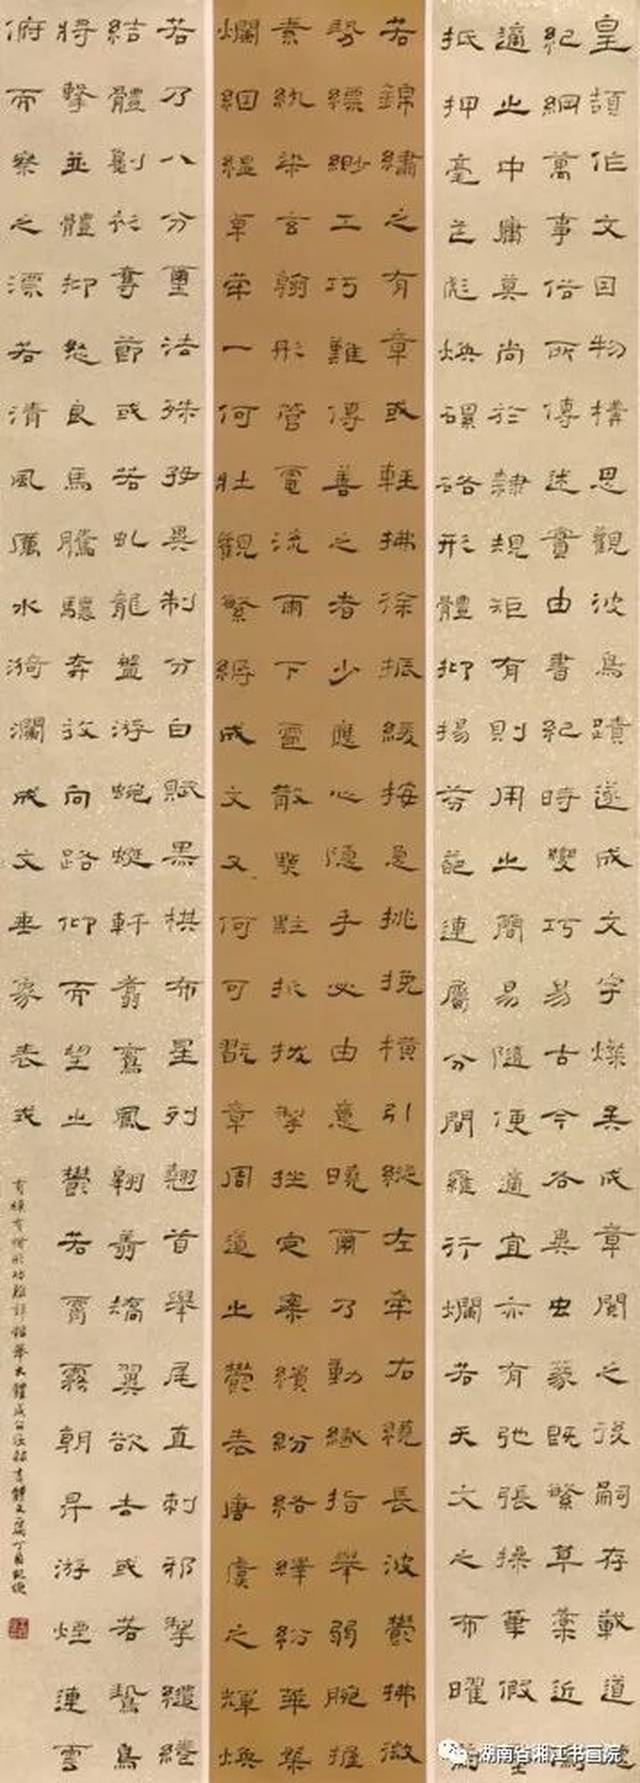 皇頡作文因物構思觀彼鳥蹟遂成文字燦矣成章閱之後嗣存載道
紀綱萬事俗所傳述實由書紀時變巧易古今各異虫篆既繁草藁近偽
適之中庸莫尚於隸規矩有則用之簡易隨便適宜亦有弛張操筆假墨
抵押毫芒彪煥磥硌形體抑揚芬葩連屬分間羅行爛若天文之布曜蔚
若錦繡之有章或輕拂徐振緩按急挑挽橫引縱左牽右繞長波鬱拂微
勢縹緲工巧難傳善之者少應心隱手必由意曉爾乃動纖指舉弱腕握
素紈染玄翰彤管電流雨下雹散點駐抵拔掣挫定案繽紛絡繹紛華粲
爛絪縕卓犖一何壯觀繁縟成文又何可翫章周道之鬱表唐虞之輝煥
若乃八分璽法殊好異制分白賦黑棋布星列翹首舉尾直刺邪掣繾綣
結體劖衫奪節或若虬龍盤游蜿蜒軒翥鸞鳳翱翔矯翼欲去或若鷙鳥
將擊並體抑怒良馬騰驤奔放向路仰而望之鬱若霄霧朝昇游煙連雲
俯而察之漂若清風厲水漪瀾成文垂象表式
有模有楷形功難詳粗舉大體成公綏隸書體文寫丁酉
湖南省湘江书画院